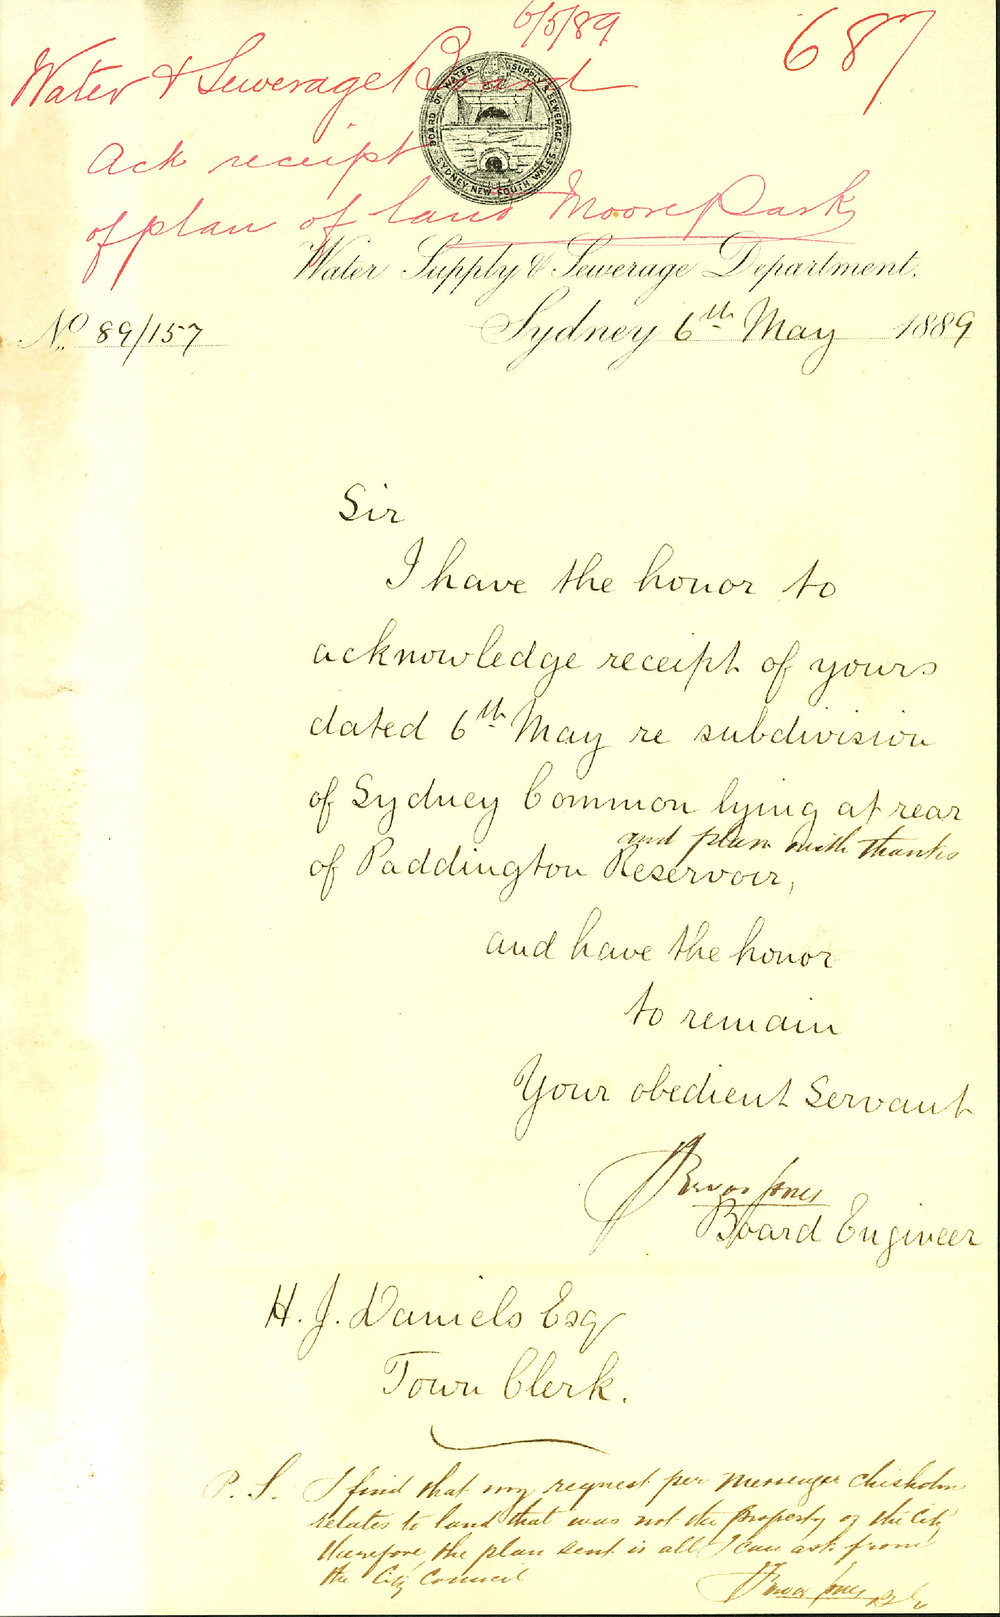 6/5/89
687
Water & Sewerage Board
Ack receipt
of plan of land Moore Park
BOARD OF WATER SUPPLY & SEWERAGE
SYDNEY NEW SOUTH WALES
Water Supply & Sewerage Department.
No. 89/157
Sydney 6th May 1889
Sir
I have the honor to
acknowledge receipt of yours
dated 6th May re subdivision
of Sydney Common lying at rear
and plan with thanks
of Paddington Reservoir,
and have the honor
to remain
Your obedient Servant
Trevor Jones
Board Engineer
H. J. Daniels Esq
Town Clerk.
P. S. I find that my request per Messenger Chisholm
relates to land that was not the property of the City
therefore the plan sent is all I can ask from
the City Council
Trevor Jones